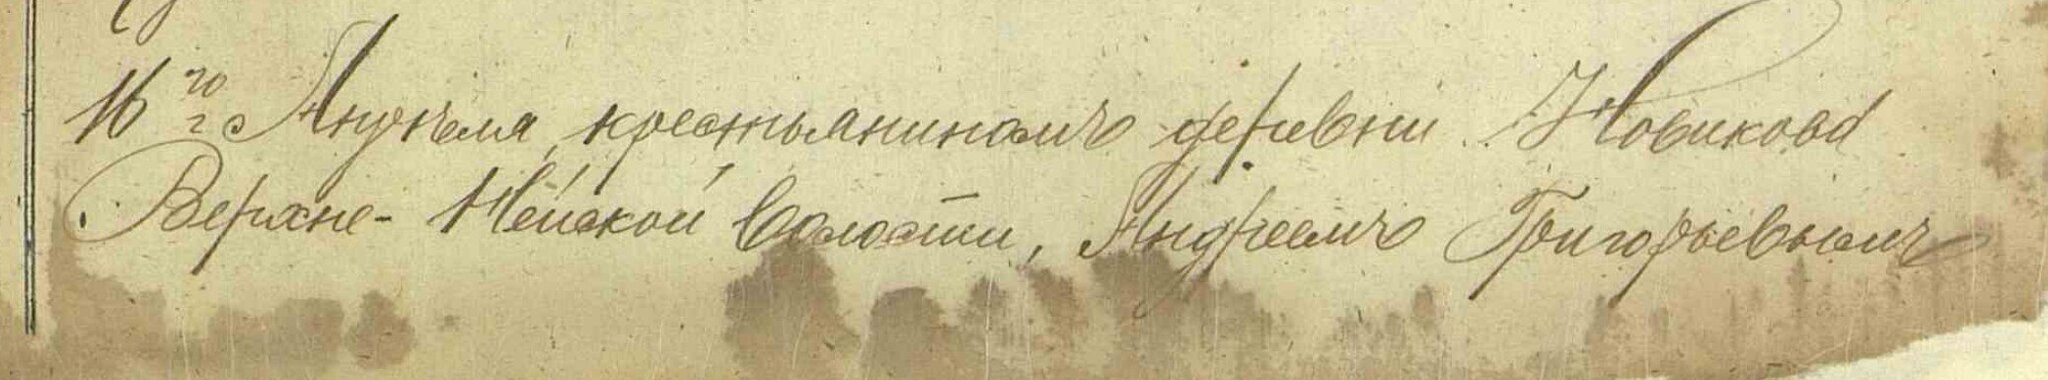 16го Апреля, крестьяниномъ деревни Новикова
Верхне-Нейской волости, Андреемъ Григорьевымъ